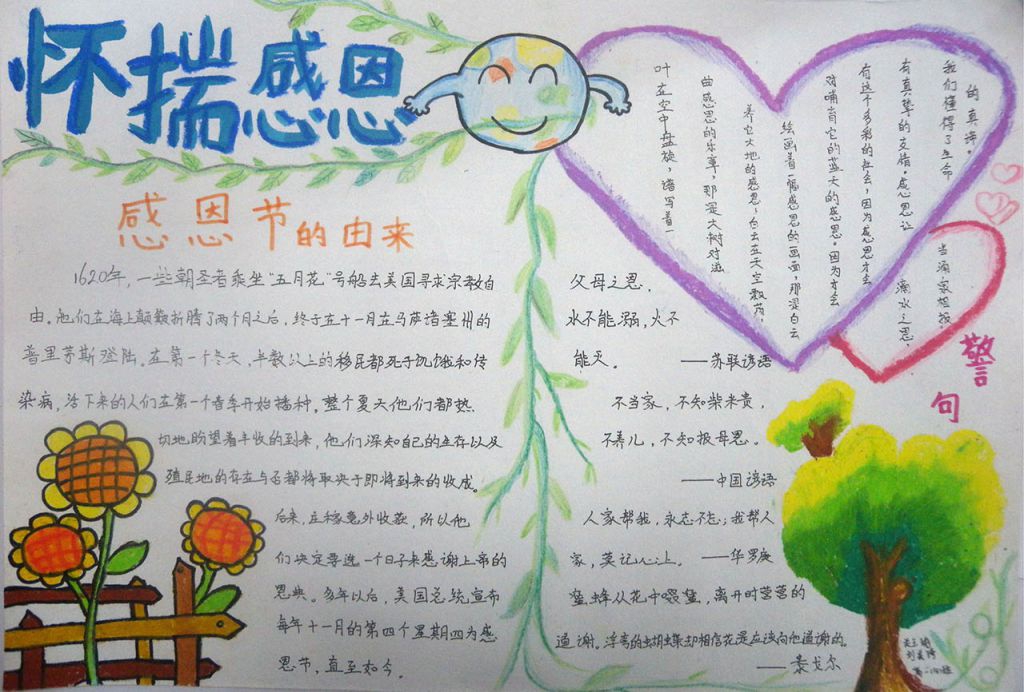 怀揣感恩
感恩节的由来
1620年，一些朝圣者乘坐“五月花”号船去美国寻求宗教自
由。他们在海上颠颠折腾了两个月之后，终于在十一月在马萨诸塞州的
普里茅斯登陆。在第一个冬天，半数以上的移民都死于饥饿和传
染病，活下来的人们在第一个春季开始播种，整个夏天他们都热
切地盼望着丰收的到来，他们深知自己的生存以及
殖民地的存在与否都将取决于即将到来的收成。
后来，庄稼意外收获，所以他
们决定要选一个日子来感谢上帝的
恩典。多年以后，美国总统宣布
每年十一月的第四个星期四为感
恩节，直至如今。
叶在空中盘旋，谱写着一
曲感恩的乐章，那是大树对滋
养它大地的感恩；白云在蓝天空飘荡，
绘画着一幅感恩的画面，那是白云
对哺育它的蓝天的感恩。因为才会
有这个多彩的社会，因为感恩才会
有真挚的友情。感恩让
我们懂得了生命
的真谛。
滴水之恩，
当涌泉相报。
警句
父母之恩，
水不能溺，火不
能灭。——苏联谚语
不当家，不知柴米贵，
不养儿，不知报母恩。
——中国谚语
人家帮我，永志不忘；我帮人
家，莫记心上。——华罗庚
蜜蜂从花中啜蜜，离开时营营的
道谢。浮夸的蝴蝶却相信花是应该向他道谢的。
——泰戈尔